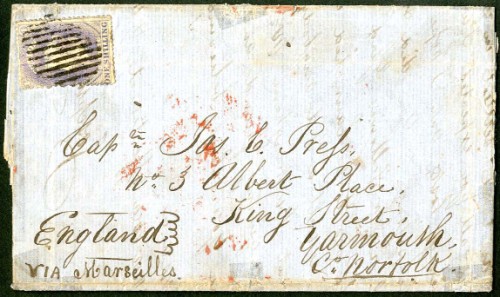 ONE SHILLING
Capn Jas C. Press,
No 3 Albert Place,
King Street,
Yarmouth,
Co. Norfolk
England
VIA Marseilles.